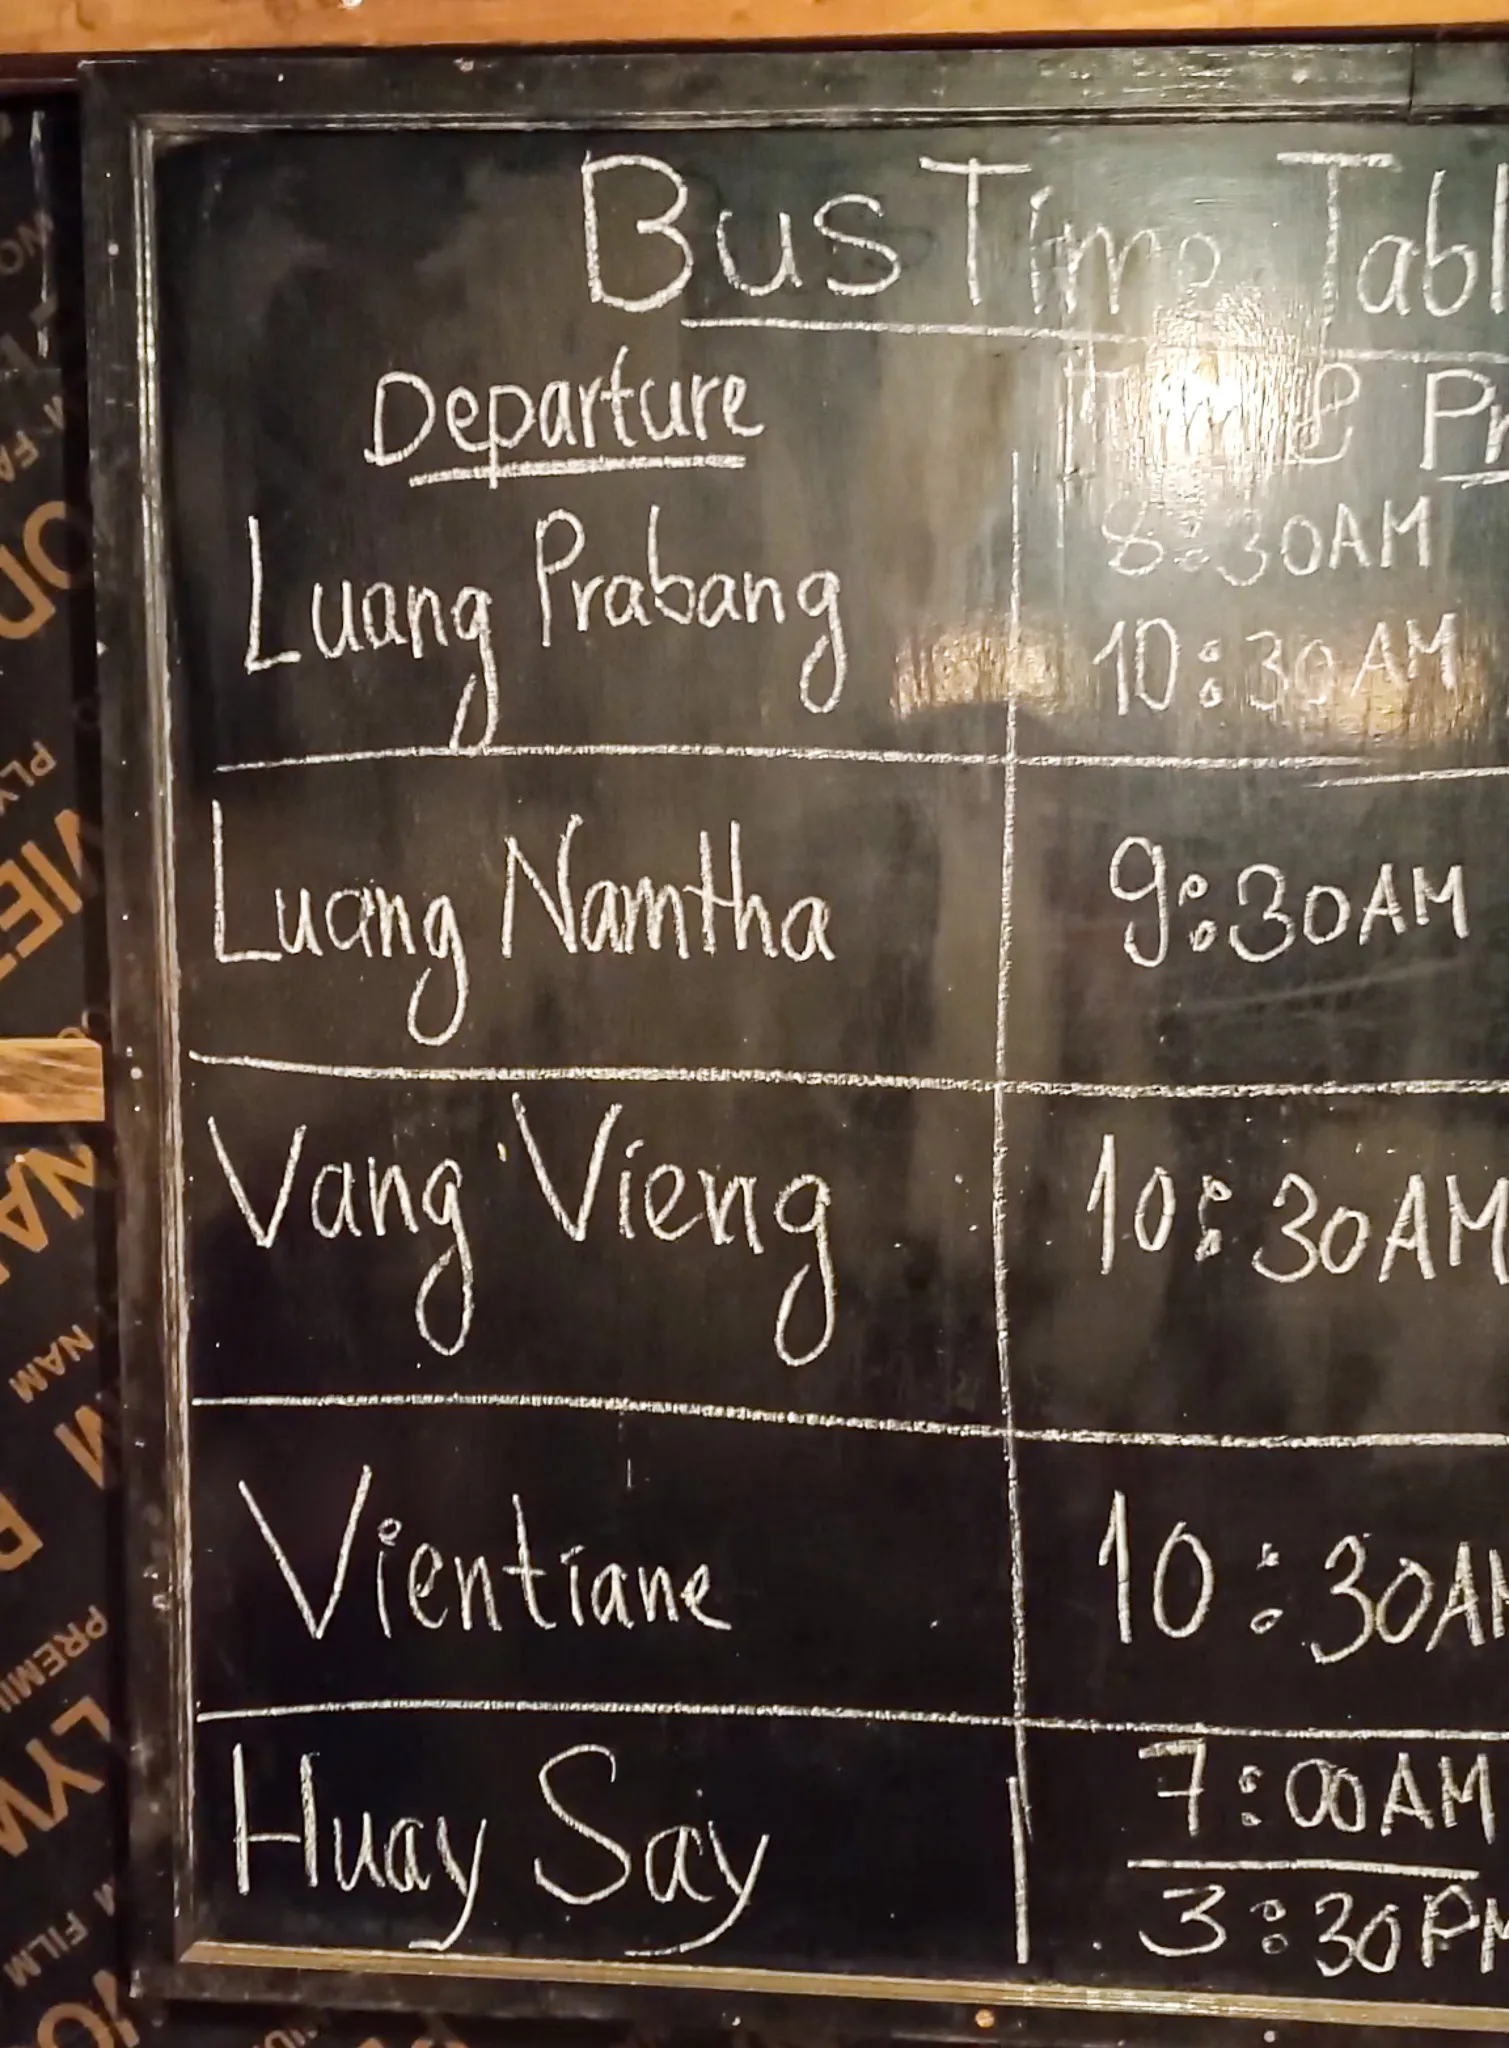 Bus Time Tabl
Departure time Pr
Luang Prabang 8:30AM
10:30AM
Luang Namtha 9:30AM
Vang Vieng 10:30AM
Vientiane 10:30AM
Huay Say 7:00AM
3:30PM
NAM
PREMIU
FILM